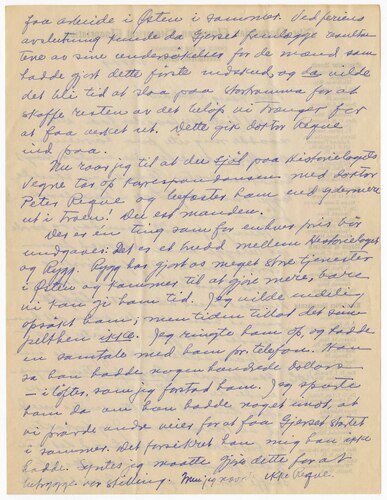 faa arbeide i Østen i sommer. Ved feriens
avslutning kunde da Gjerset fremlægge resulta-
tene av sine undersøkelser for de mænd som
hadde gjort dette første indskud, og da vilde
det bli tid at slaa paa stortromma for at
skaffe resten av det beløp vi trænger for
at faa verket ut. Dette gik doktor Reque
ind paa.
Nu raar jeg til at du sjøl paa Historielagets
vegne tar op korrespondansen med doktor
Peter Reque og befæster ham end ydermere
ut i troen! Du est manden.
Der er en ting som for enhver pris bør
undgaaes: Det er et brudd mellem Historielaget
og Rygg. Rygg har gjort os meget store tjenester
i Østen og kommer til at gjøre mere, bare
vi kan gi ham tid. Jeg vilde endelig
opsøkt ham; men tiden tillot det sim-
pelthen ikke. Jeg ringte ham op, og hadde
en samtale med ham pr. telefon. Han
sa han hadde nogen hundrede dollars
– i løfter, som jeg forstod ham. Jeg spurte
ham da om han hadde noget imot, at
vi prøvde andre veier for at faa Gjerset støttet
i sommer. Det forsikret han mig han ikke
hadde. Syntes jeg maatte gjøre dette for at
betrygge vor stilling. Men jeg ikke Reque.